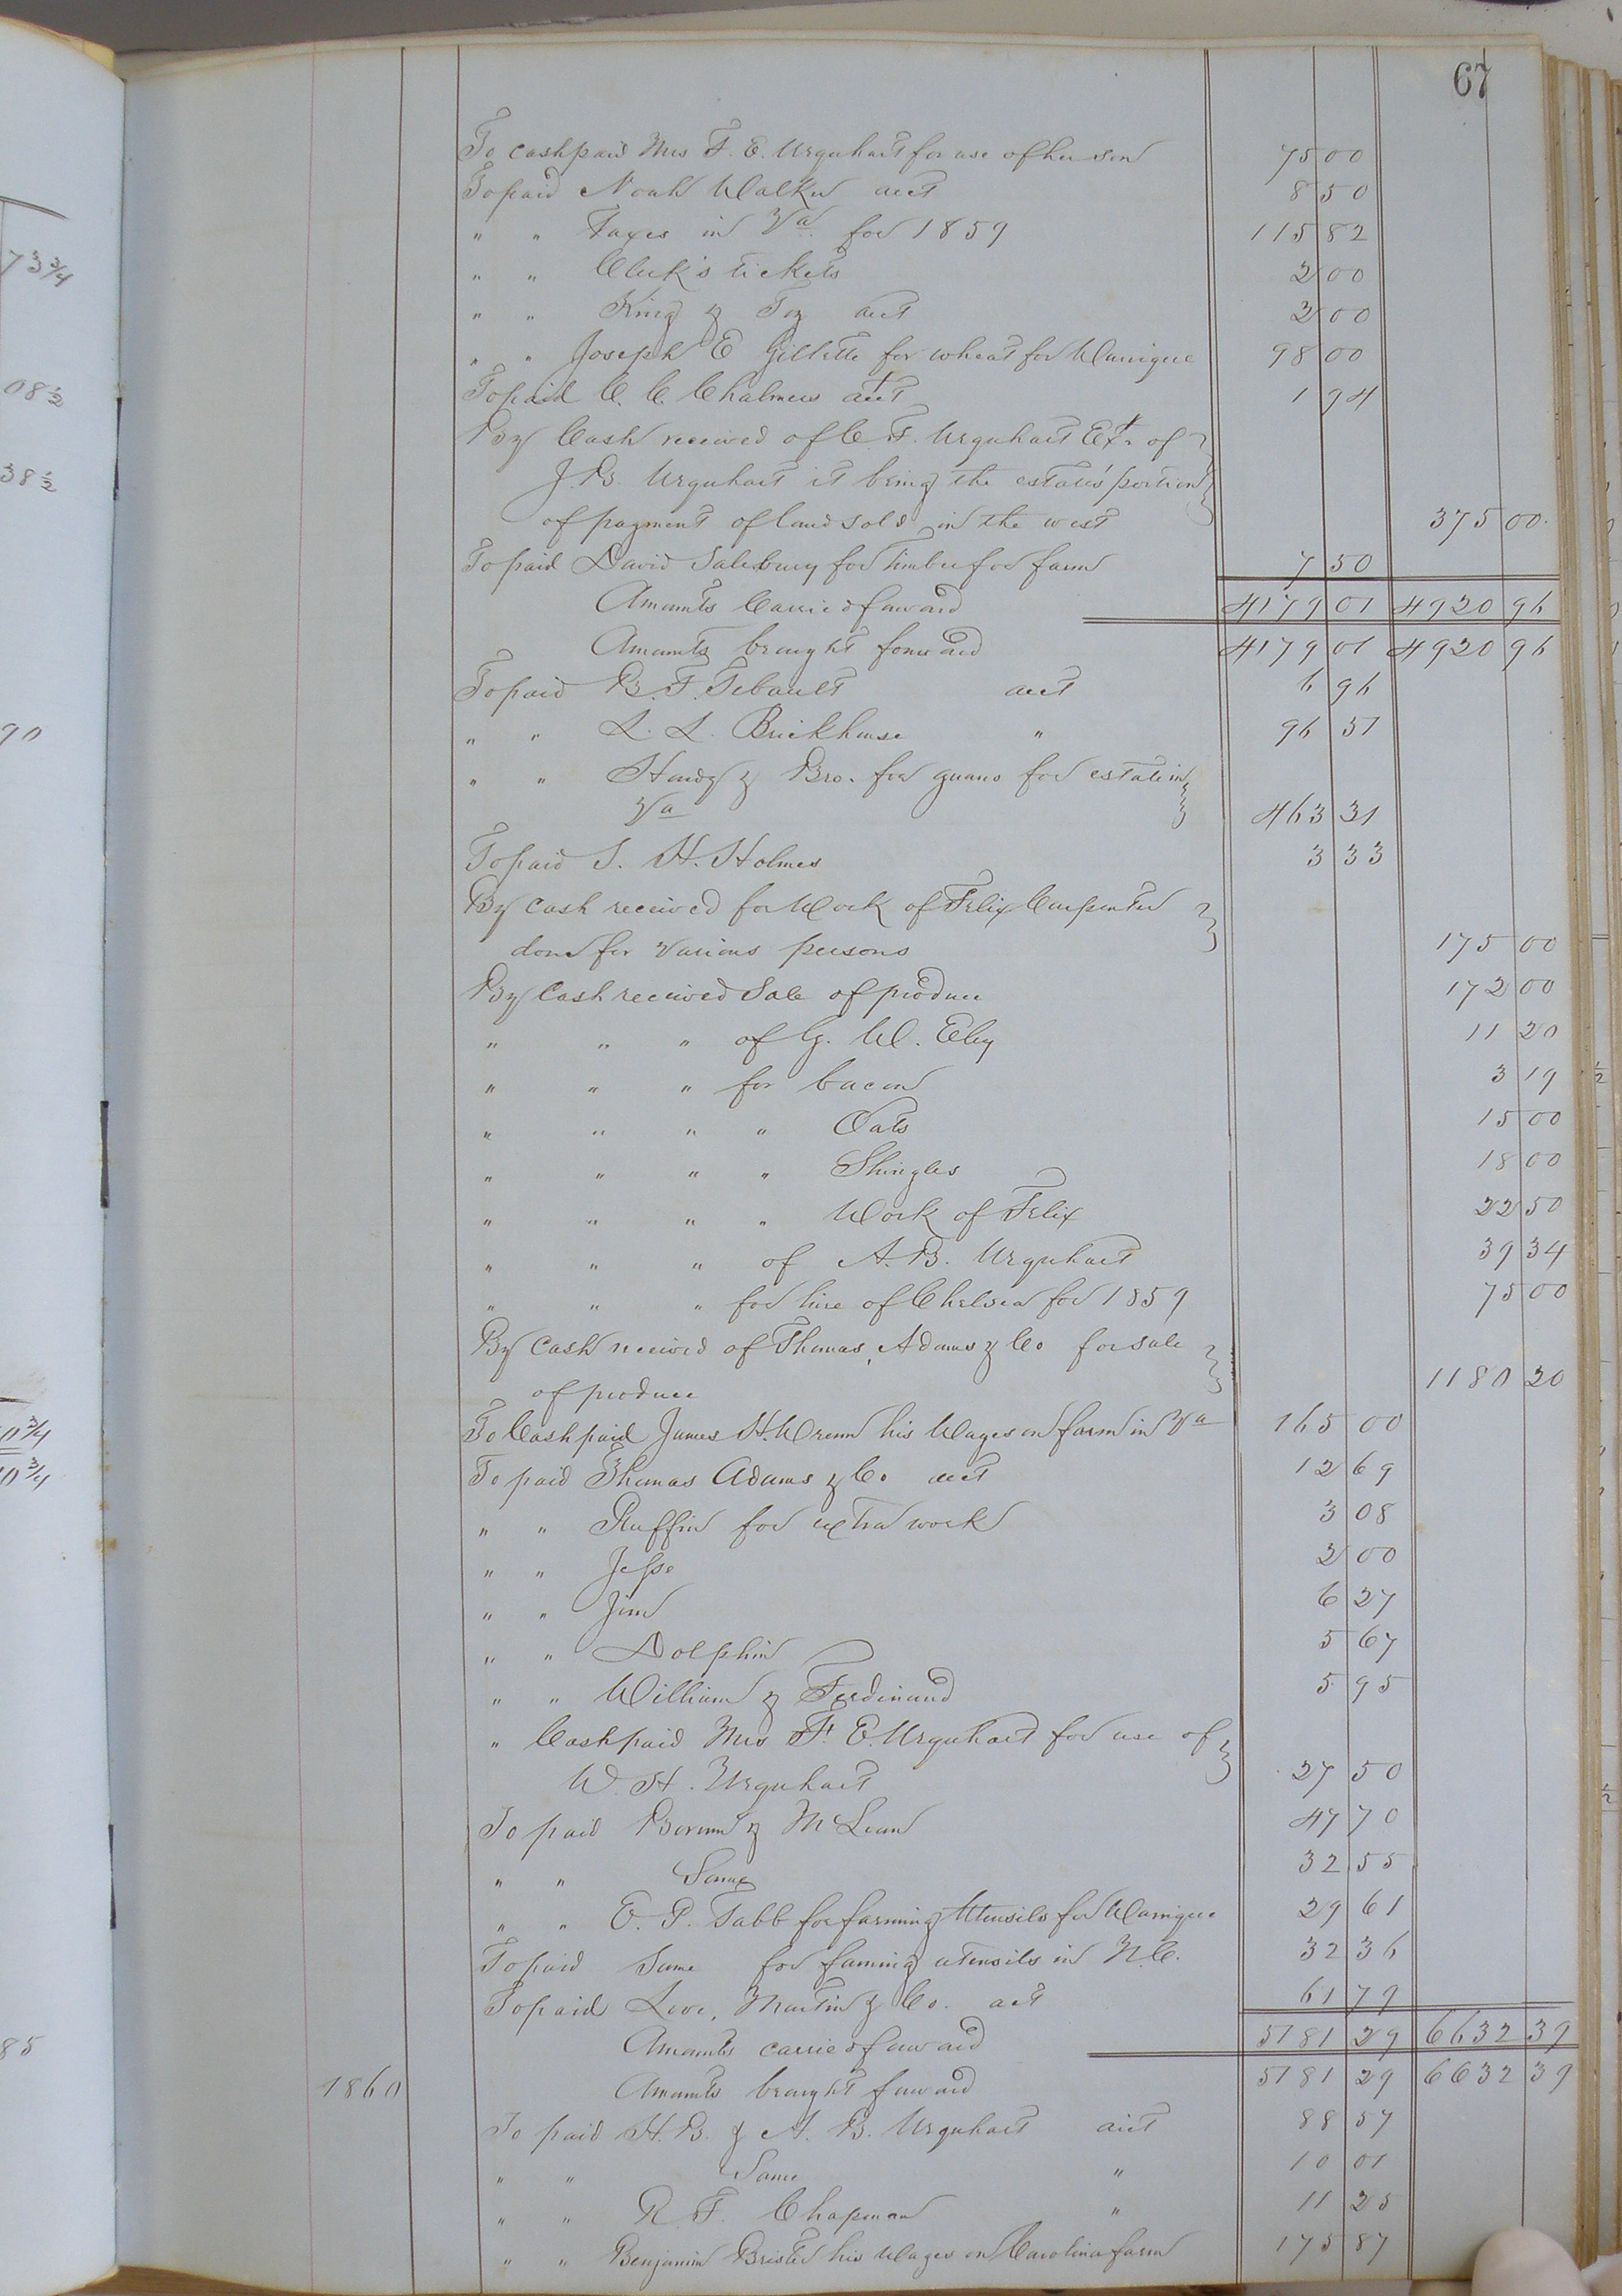 67
To cash paid Mrs F. E. Urquhart for use of her son 75 00
To paid Noah Walker acct 8 50
" " Taxes in Va for 1859 115 82
" " Clerk's tickets 2 00
" " King & Toy acct 2 00
" " Joseph E Gillette for wheat for Warrique 98 00
To paid C. C. Chalmers acct 1 94
By Cash received of C. F. Urquhart Exr. of
J. B. Urquhart it being the estates' portion
of payment of land sold in the west 375 00
To paid David Salesbury for timber for farm 7 50
Amounts Carried forward 4179 01 4920 96
Amounts brought forward 4179 01 4920 96
To paid B. F. Tebault acct 6 96
" " L. L. Brickhouse " 96 51
" " Hardy & Bro. for guano for estate in
Va 463 31
To paid S. H. Holmes 3 33
By Cash received for Work of Felix Carpenter
done for various persons 175 00
By Cash received Sale of produce 172 00
" " " of G. W. Eley 11 20
" " " for bacon 3 19
" " " " Oats 15 00
" " " " Shingles 18 00
" " " " Work of Felix 22 50
" " " of A. B. Urquhart 39 34
" " " for hire of Chelsea for 1859 75 00
By Cash received of Thomas, Adams & Co for sale
of produce 1180 20
To Cash paid James H. Wrenn his Wages on farm in Va 165 00
To paid Thomas Adams & Co acct 12 69
" " Ruffin for extra work 3 08
" " Jesse 2 00
" " Jim 6 27
" " Dolphin 5 67
" " William & Ferdinand 5 95
" Cash paid Mrs F. E. Urquhart for use of
W. H. Urquhart 27 50
To paid Borum & McLean 47 70
" " Same 32 55
" " E. P. Tabb for farming Utensils for Warrique 29 61
To paid Same for farming utensils in N.C. 32 36
To paid Love, Martin & Co. act 61 79
Amounts carried forward 5181 29 6632 39
1860 Amounts brought forward 5181 29 6632 39
To paid H. B. & A. B. Urquhart acct 88 57
" " Same " 10 01
" " R. F. Chapman " 11 25
" " Benjamin Brister his Wages on Carolina farm 175 87
73 3/4
08 1/2
38 1/2
90
0 3/4
0 3/4
85